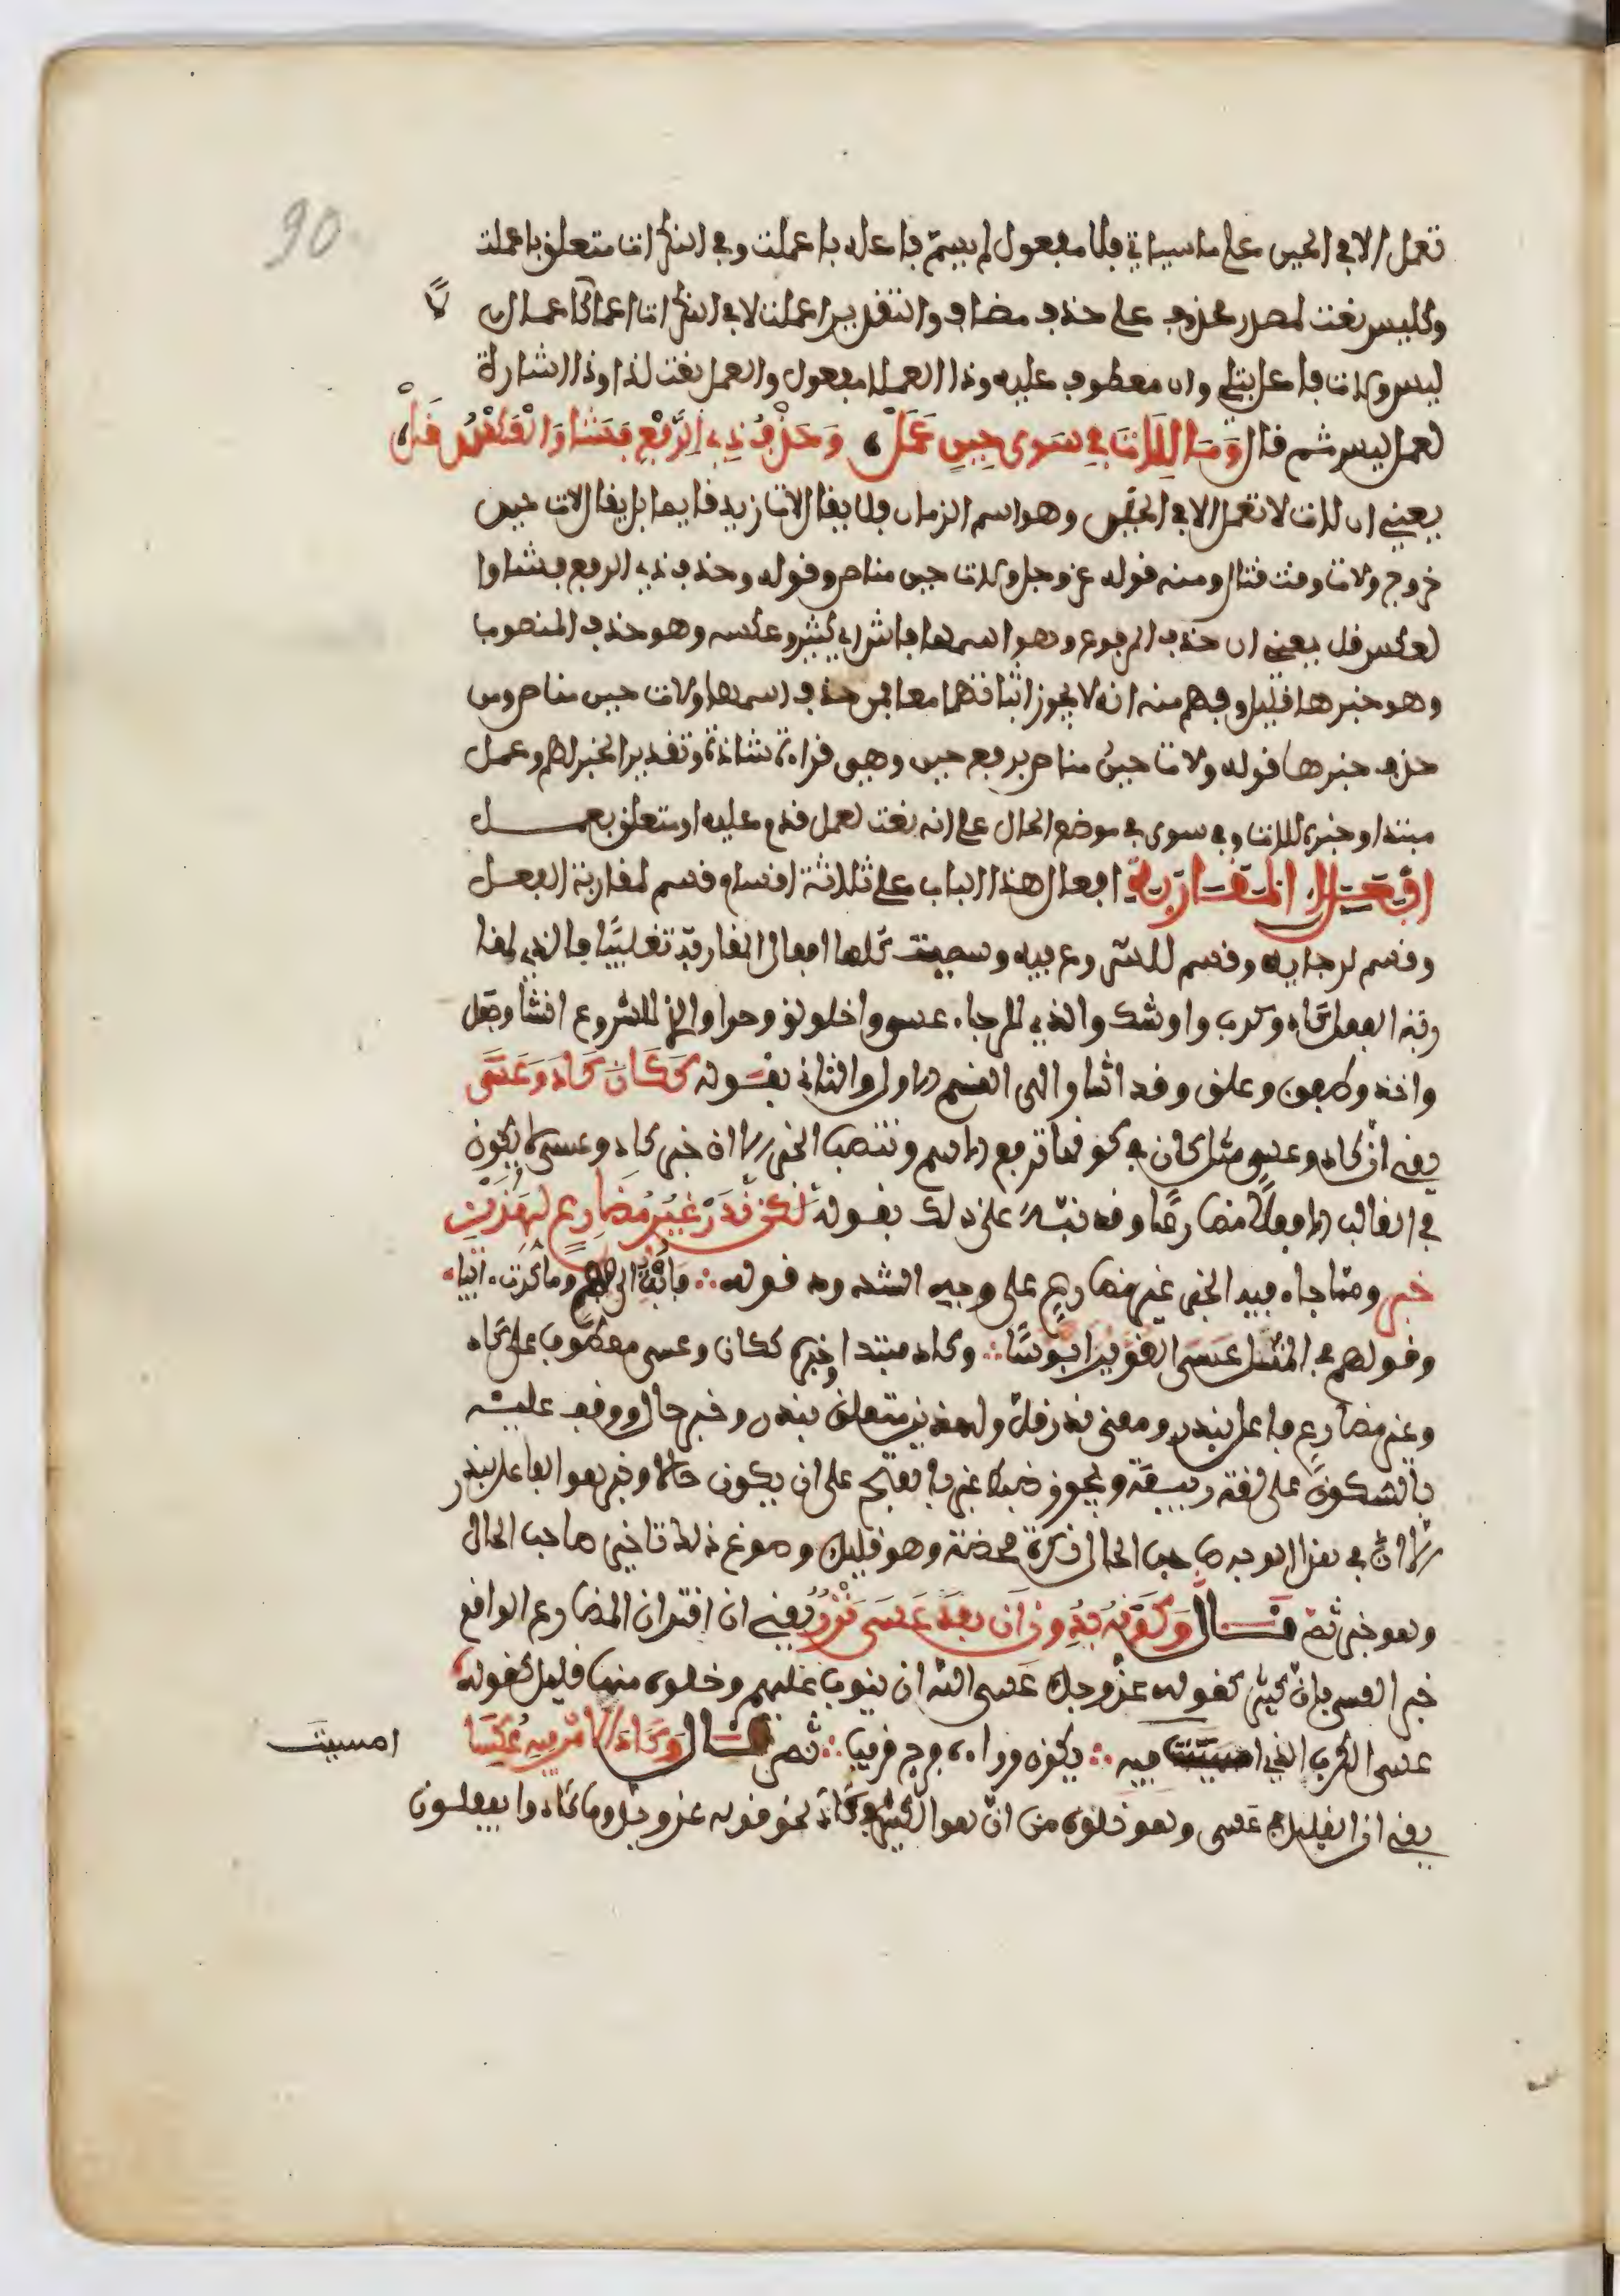 90
تعمل الا في الحين على ما سياتي فلا مفعول لم يسم فاعله باعملت وفي النكرات متعلق باعملت
وكليس نعت لمصدر محذوف على حذف مضاف والتقدير اعملت لا في النكرات اعمالا كاعمال لا
ليس ولات فاعل بتلي وان معطوف عليه وذا العملا مفعول والعمل نعت لذا وذا اشارة
لعمل ليس ثم قال وَمَا لِلَاتَ فِي سِوَى حِينٍ عَمَلْ وَحَذْفُ ذِي الرَّفْعِ فَشَا وَالْعَكْسُ قَلْ
يعني ان لات لا تعمل الا في الحين وهو اسم الزمان فلا يقال لات زيد قايما بل يقال لات حين
خروج ولات وقت قتال ومنه قوله عز وجل ولات حين مناص وقوله وحذف ذي الرفع فشا وا
لعكس قل يعني ان حذف المرفوع وهو اسمها فاش اي كثير وعكسه وهو حذف المنصوب
وهو خبرها قليل وفهم منه انه لا يجوز اثباتهما معا فمن حذف اسمها ولات حين مناص ومن
حذف خبرها قوله ولات حينُ مناص برفع حين وهي قراءة شاذة وتقدير الخبر لهم وعمل
مبتدا وخبره للات وفي سوى في موضع الحال على انه نعت لعمل قدم عليه او متعلق بعمل
افعال المقاربة افعال هذا الباب على ثلاثة اقسام قسم لمقاربة الفعل
وقسم لرجايه وقسم للشروع فيه وسميت كلها افعال المقاربة تغليبا فالذي لمقا
ربة الفعل كاد وكرب واوشك والذي للرجاء عسى واخلولق وحرا والذي للشروع انشا وجعل
واخذ وطفق وعلق وقد اشار الى القسم الاول والثاني بقوله كَكَانَ كَادَ وَعَسَى
يعني ان كاد وعسى مثل كان في كونها ترفع الاسم وتنصب الخبر الا ان خبر كاد وعسى لا يكون
في الغالب الا فعلا مضارعا وقد نبه على ذلك بقوله لَكِنْ نَدَرْ غَيْرُ مُضَارِعٍ لِهَذَيْنِ
خبر ومما جاء فيه الخبر غير مضارع على وجه الشذوذ قوله فأبت الى فهم وما كدت ءائبا
وقولهم في المثل عَسَى الغوير ابؤسًا وكاد مبتدا وخبره ككان وعسى معطوف على كاد
وغير مضارع فاعل بندر ومعنى ندر قل ولهذين متعلق بندر وخبر حال ووقف عليه
بالسكون على لغة ربيعة ويجوز ضبط غير بالفتح على ان يكون حالا وخبر هو الفاعل بندر
الا ان في هذا الوجه صاحب الحال نكرة محضة وهو قليل وسوغ ذلك تاخير صاحب الحال
وهو خبر ثم قال وَكَوْنُهُ بِدُونِ أَنْ بَعْدَ عَسَى نَزْرٌ يعني ان اقتران المضارع الواقع
خبر العسى بان كثير كقوله عز وجل عَسى الله ان يتوب عليهم وخلوه منها قليل كقوله
عسى الكرب الذي امسيت فيه يكون وراءه فرج قريب ثم قال وَكَادَ الأمْرُ فِيهِ عُكِسَا
امسيت
يعني ان القليل في عسى وهو خلوه من ان هو الكثير في كاد نحو قوله عز وجل وما كادوا يفعلون